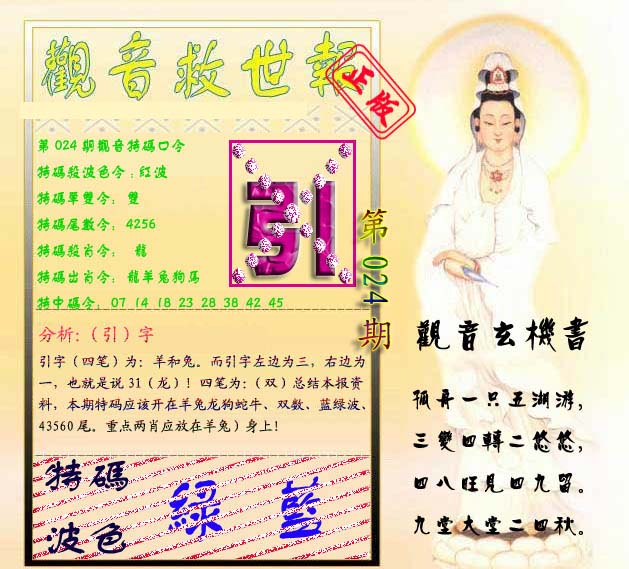 觀音救世報
正版
第024期觀音特碼口令
特碼殺波色令:紅波
特碼單雙令: 雙
特碼尾數令: 4256
特碼殺肖令: 龍
特碼出肖令: 龍羊兔狗馬
特中碼令: 07 14 18 23 28 38 42 45
引
第024期
分析:(引)字
引字(四笔)为:羊和兔。而引字左边为三,右边为
一,也就是说31(龙)!四笔为:(双)总结本报资
料,本期特码应该开在羊兔龙狗蛇牛、双数、蓝绿波、
43560尾。重点两肖应放在羊兔)身上!
特碼
波色
綠 藍
觀音玄機書
孤舟一只五湖游,
三變四轉二悠悠,
四八旺見四九留。
九堂大堂二四秋。